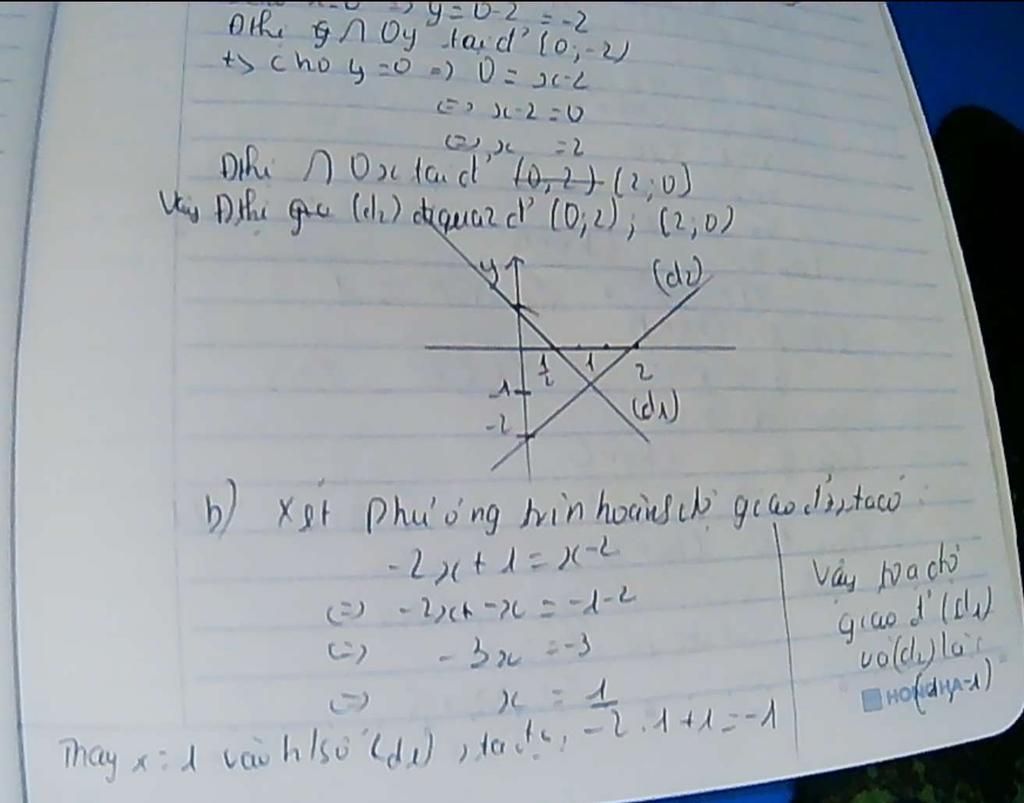 y = 0-2 = -2
Đthị ∩ Oy tại đ' (0; -2)
+> cho y =0 => 0 = x-2
<=> x-2 = 0
<=> x = 2
Đthị ∩ Ox tại đ' (0, 2) (2; 0)
Vậy Đthị (d2) đi qua 2 đ' (0;2); (2;0)
y (d2)
1/2 1 2
-1 (d1)
-2
b) Xét phương trình hoành độ giao đ', ta có:
-2x + 1 = x-2
<=> -2x -x = -1-2
<=> -3x = -3
<=> x = 1
Thay x = 1 vào h/số (d1), ta -2.1+1 = -1
Vậy toạ độ
giao đ' (d1)
và (d2) là:
HONG HA (1;-1)